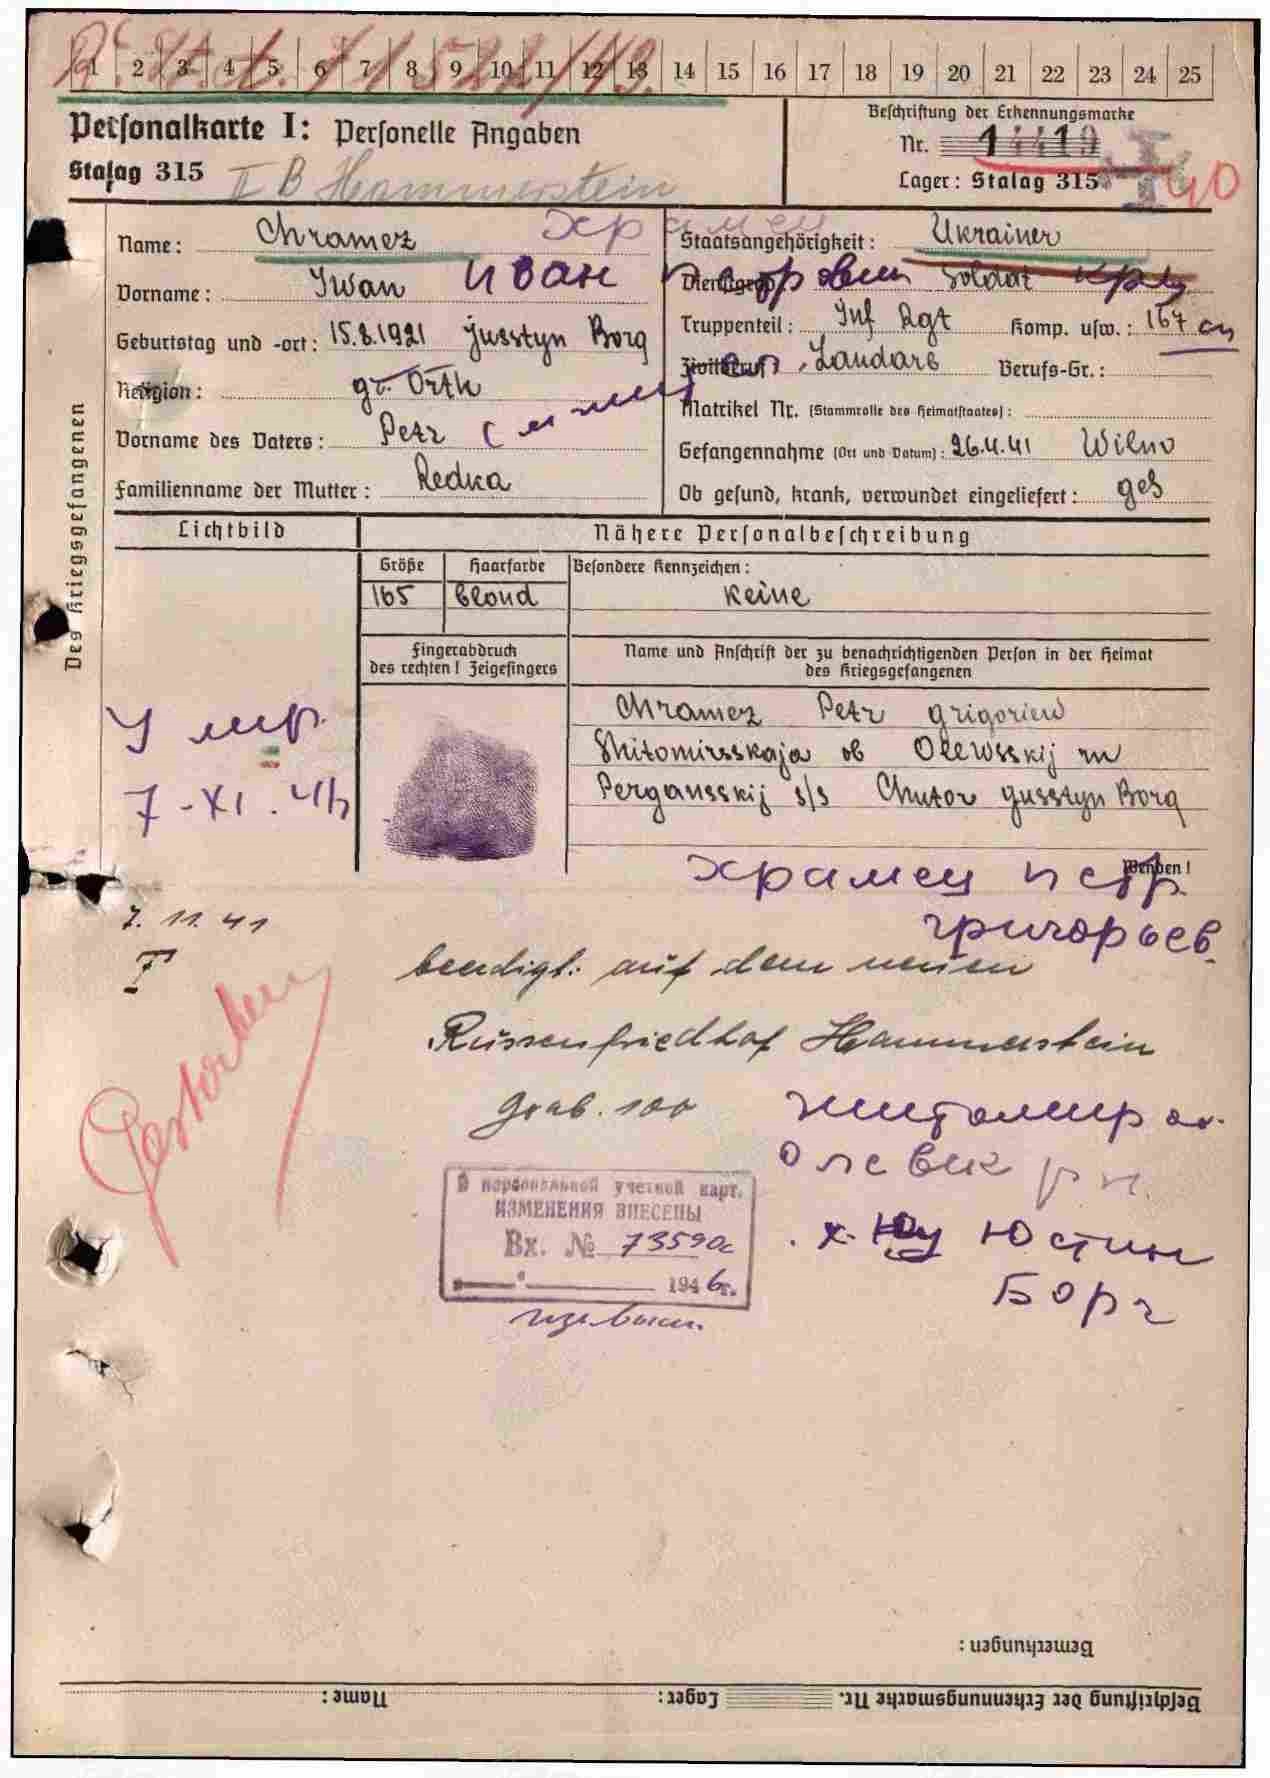 1 2 3 4 5 6 7 8 9 10 11 12 13 14 15 16 17 18 19 20 21 22 23 24 25
Personalkarte I: Personelle Angaben
Beschriftung der Erkennungsmarke
Nr. 14419
Stalag 315 II B Hammerstein
Lager: Stalag 315
Des Kriegsgefangenen
Name: Chramez Храмец
Staatsangehörigkeit: Ukrainer
Vorname: Iwan Иван Петрович
Dienstgrad: Soldat
Geburtstag und -ort: 15.8.1921 Jusstyn Borg
Truppenteil: Inf Rgt Komp. usw.: 167
Religion: gr. Orth
Zivilberuf: Landarb Berufs-Gr.:
Matrikel Nr. (Stammrolle des Heimatstaates):
Vorname des Vaters: Petr
Gefangennahme (Ort und Datum): 26.4.41 Wilno
Familienname der Mutter: Redka
Ob gesund, krank, verwundet eingeliefert: ges
Lichtbild
Nähere Personalbeschreibung
Größe Haarfarbe Besondere Kennzeichen:
165 blond keine
Fingerabdruck
des rechten! Zeigefingers
Name und Anschrift der zu benachrichtigenden Person in der Heimat
des Kriegsgefangenen
Chramez Petr Grigoriew
Shitomirsskaja ob Olewsskij rn
Pergansskij s/s Chutor Jusstyn Borg
Умер
7-XI.41
Wenden!
Храмец Петр
Григорьев.
7.11.41
beerdigt: auf dem neuen
Russenfriedhof Hammerstein
Grab. 100
Gestorben
Житомир
Олевск р н.
х. Юстин
Борг
В персональной учетной карт.
ИЗМЕНЕНИЯ ВНЕСЕНЫ
Вх. № 73590с
1946г.
Bemerkungen:
Beschriftung der Erkennungsmarke Nr. Lager: Name: